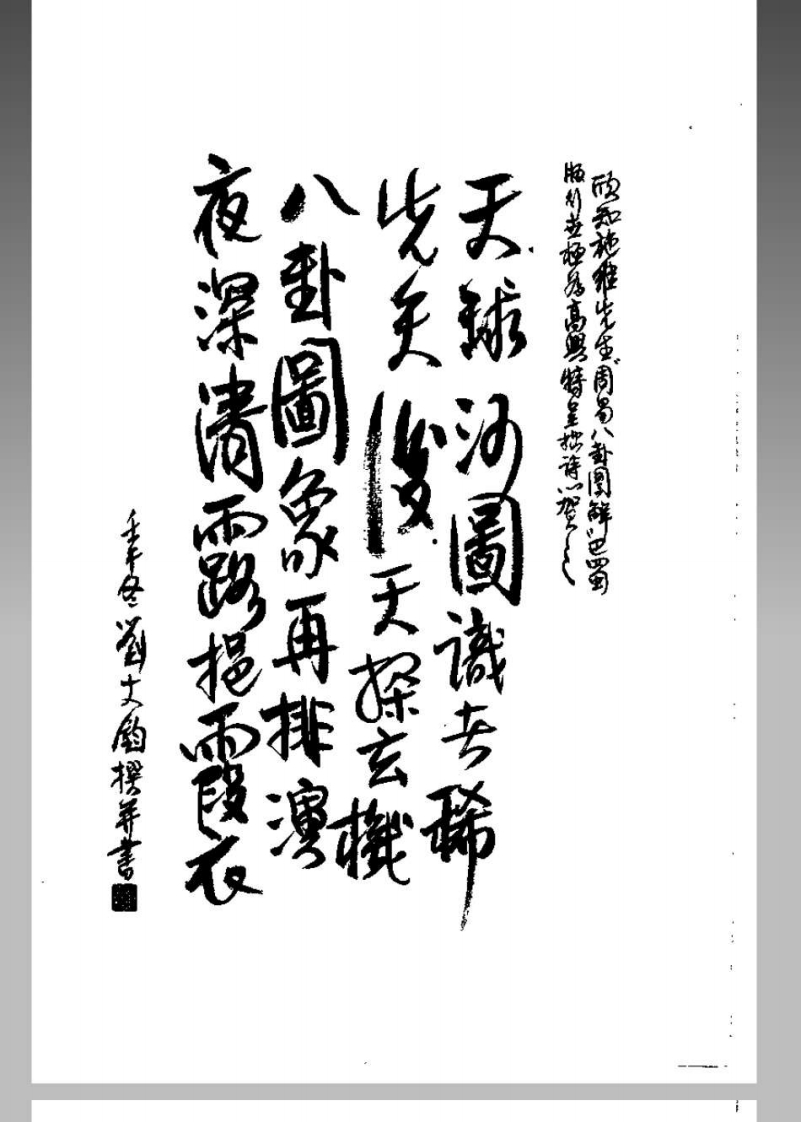 欣知施維先生周易八卦圖解巴蜀
版行世極為高興特呈拙詩以賀之
天球河圖識者稀
先天後天探玄機
八卦圖象再排演
夜深清露挹霞衣
壬午冬劉大鈞撰并書